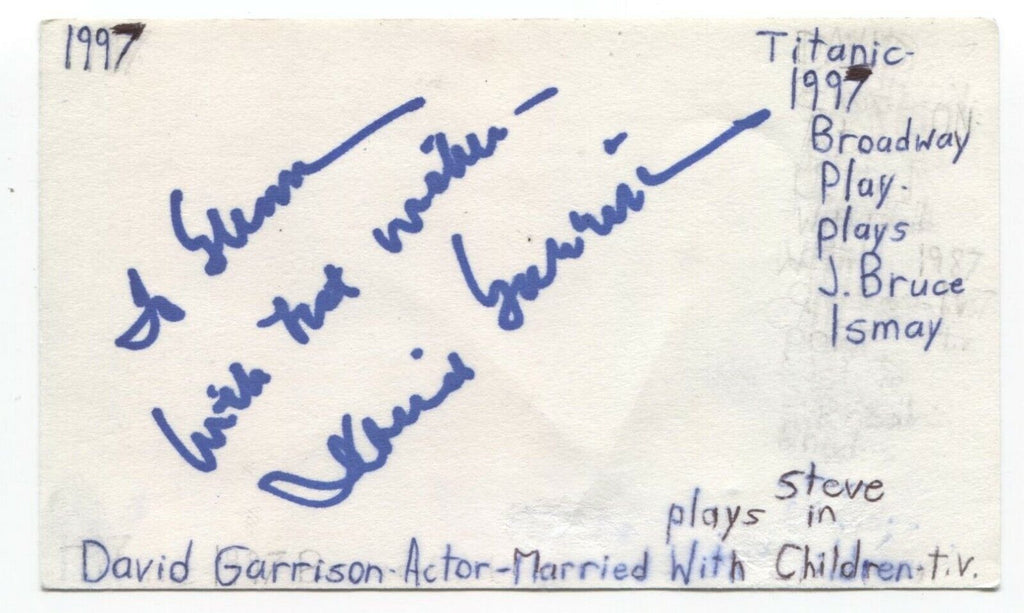 1997
Titanic-
1997
Broadway
Play.
plays
J. Bruce
Ismay
To Glenn
with best wishes
David Garrison
plays steve in
David Garrison-Actor-Married With Children-t.v.